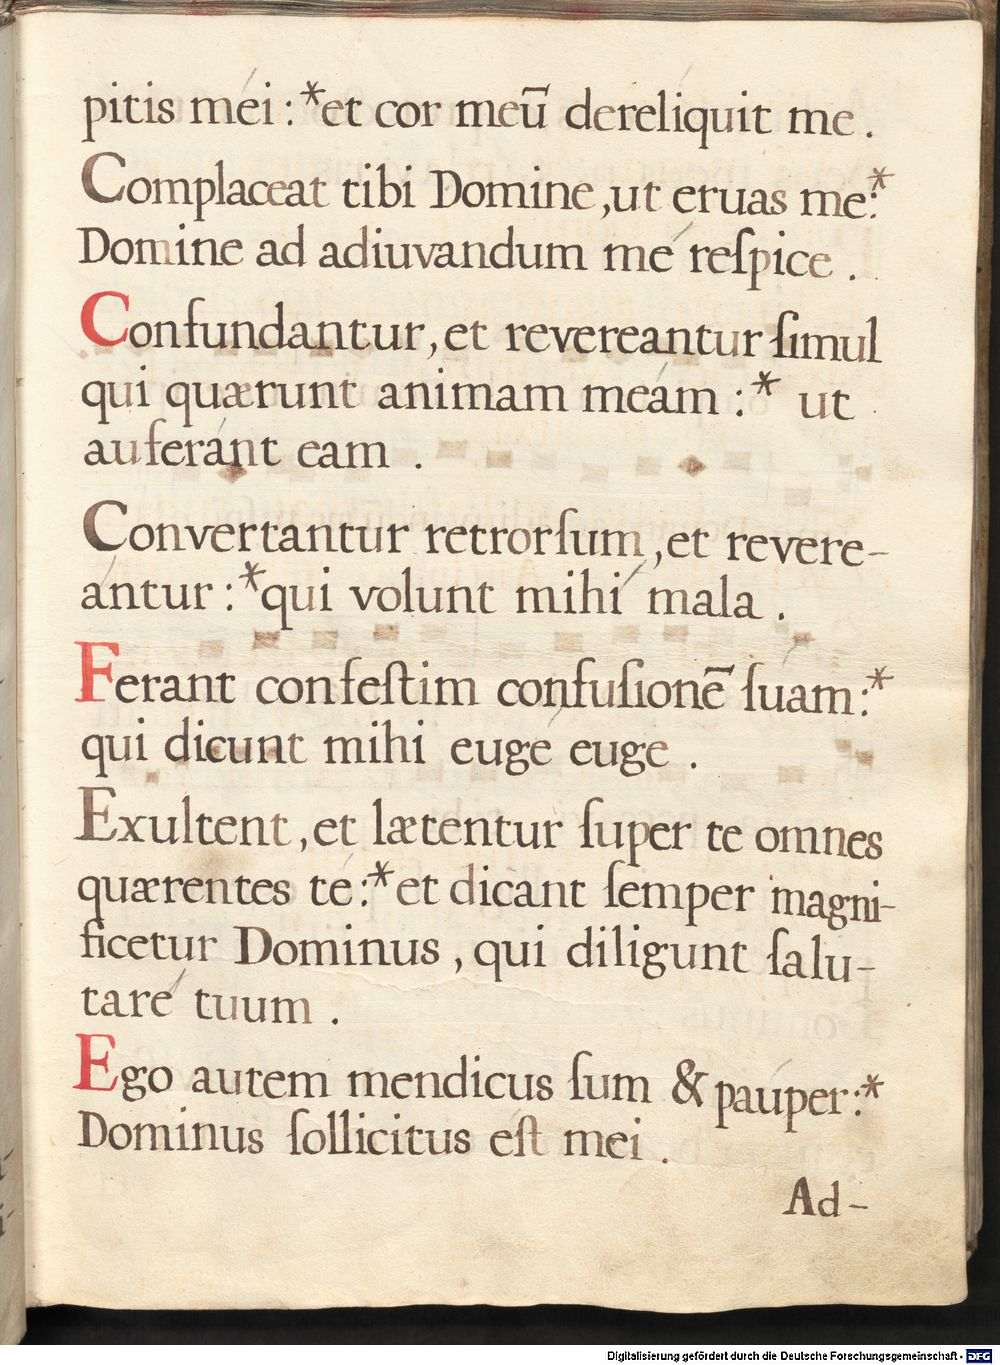 pitis méi : * et cor meū dereliquit me .
Complaceat tibi Domine, ut eruas me : *
Domine ad adiuvandum mé reſpice .
Confundantur, et revereantur ſimul
qui quærunt animam meám : * ut
auferánt eam .
Convertantur retrorſum, et revere-
ántur : * qui volunt mihí mala .
Ferant confeſtim confuſionē ſuám : *
qui dicunt mihi eugé euge .
Exultent, et lætentur ſuper te omnes
quærentes té : * et dicant ſemper magni-
ficetur Dominus, qui diligunt ſalu-
taré tuum .
Ego autem mendicus ſum & paúper : *
Dominus ſollicitus éſt mei .
Ad-
Digitalisierung gefördert durch die Deutsche Forschungsgemeinschaft - DFG